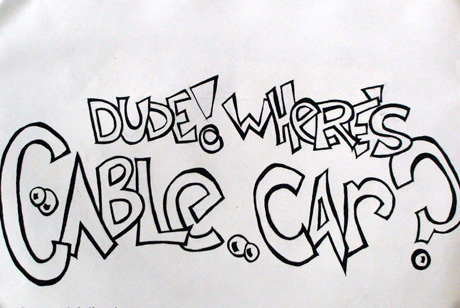 DUDE! WHERE'S
CABLE CAR?